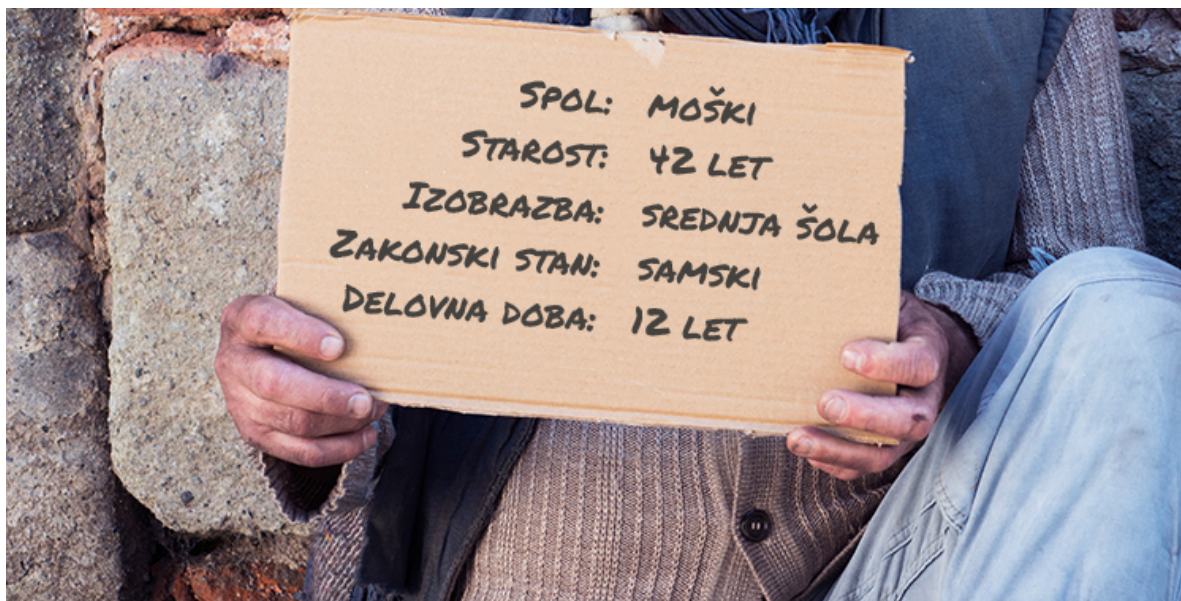 Spol: moški
Starost: 42 let
Izobrazba: srednja šola
Zakonski stan: samski
Delovna doba: 12 let